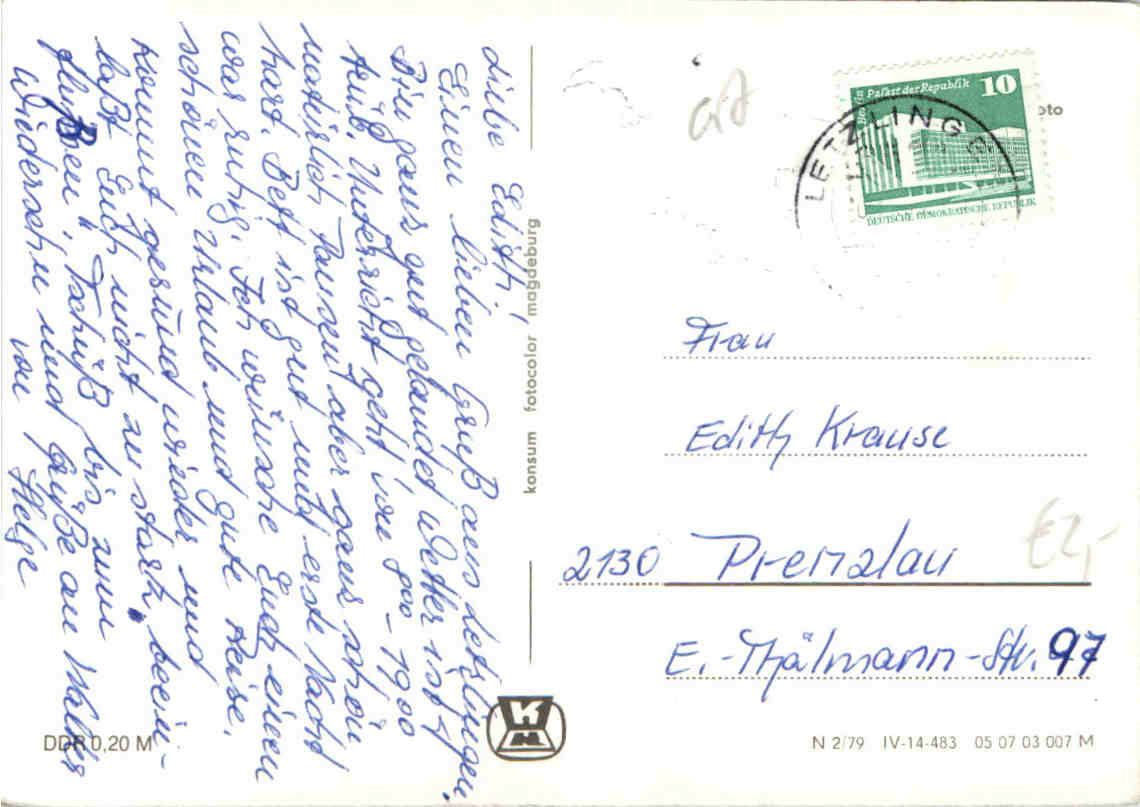 Liebe Edith,
Einen lieben Gruß aus Letzlingen.
Bin ganz gut gelandet Wetter ist
trüb. Unterricht geht von 800 - 1900
natürlich Pausen, aber ganz schön
hart. Bett ist gut und erste Nacht
war ruhig. Ich wünsche Euch einen
schönen Urlaub und gute Reise.
Kommt gesund wieder und
laßt Euch nicht zu stark beein-
flußen". Tschüß bis zum
Wiedersehn und Grüße an Walter
von Helge
konsum fotocolor magdeburg
DDR 0,20 M
Berlin Palast der Republik 10
DEUTSCHE DEMOKRATISCHE REPUBLIK
LETZLINGE
oto
Frau
Edith Krause
2130 Prenzlau
€2,-
E.-Thälmann-Str. 97
K
N 2/79 IV-14-483 05 07 03 007 M